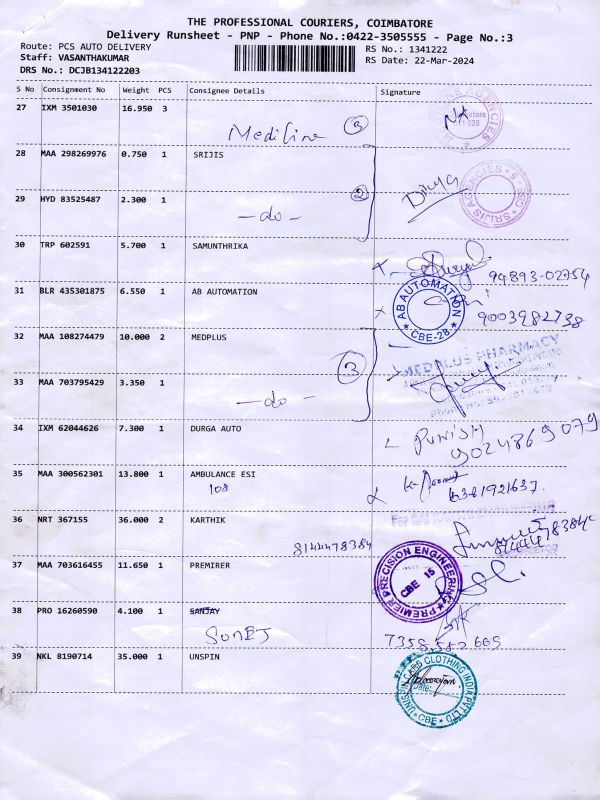 THE PROFESSIONAL COURIERS, COIMBATORE
Delivery Runsheet - PNP - Phone No.:0422-3505555 - Page No.:3
Route: PCS AUTO DELIVERY
RS No.: 1341222
Staff: VASANTHAKUMAR
RS Date: 22-Mar-2024
DRS No.: DCJB134122203
S No Consignment No Weight PCS Consignee Details Signature
27 IXM 3501030 16.950 3
Mediline 3
28 MAA 298269976 0.750 1 SRIJIS
SRIJIS AGENCIES
29 HYD 83525487 2.300 1
-do- 2
Divya
30 TRP 602591 5.700 1 SAMUNTHRIKA
94893-02754
31 BLR 435301875 6.550 1 AB AUTOMATION
AB AUTOMATION
CBE-28
9003982738
32 MAA 108274479 10.000 2 MEDPLUS
MEDPLUS PHARMACY
33 MAA 703795429 3.350 1
-do- 3
34 IXM 62044626 7.300 1 DURGA AUTO
9024869079
35 MAA 300562301 13.800 1 AMBULANCE ESI
108
6381921637.
36 NRT 367155 36.000 2 KARTHIK
8144478384
37 MAA 703616455 11.650 1 PREMIRER
PREMIER PRECISION ENGINEERING
CBE 15
38 PRO 16260590 4.100 1 SANJAY
7358 582 665
39 NKL 8190714 35.000 1 UNSPIN
CLOTHING INDIA PVT LTD
Date:
CBE